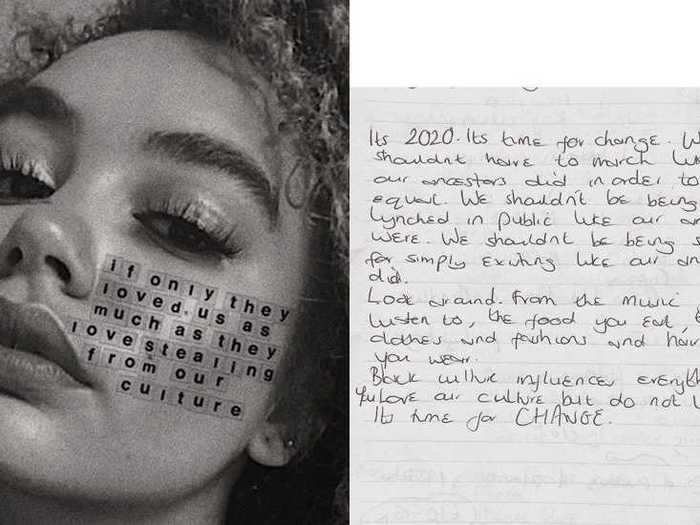 if only they
loved us as
much as they
love stealing
from our
culture
Its 2020. Its time for change.
shouldnt have to march
our ancestors did in order to
equal. We shouldn't be being
lynched in public like our
were. We shouldnt be being
for simply existing like our
did.
Look around. From the music
listen to, the food you eat,
clothes and fashions and
you wear.
Black culture influences
You love our culture but do not
Its time for CHANGE.